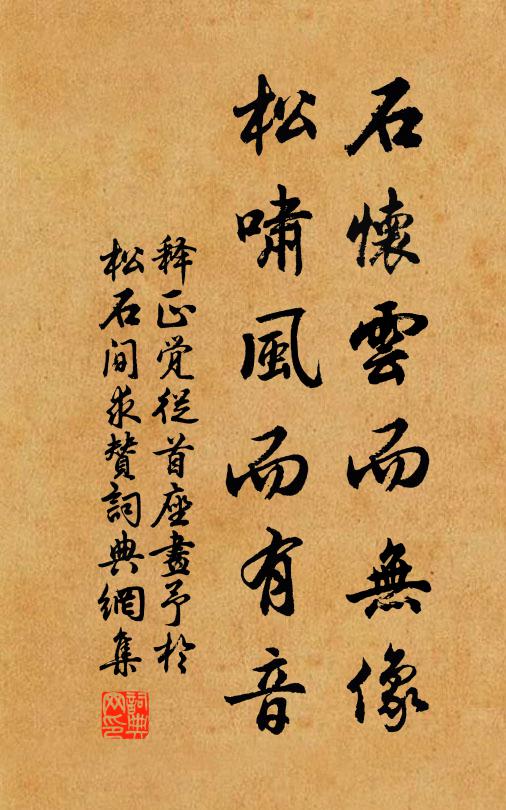 石懷雲而無像
松嘯風而有音
释正觉從首座畫予於
松石间求贊詞典網集
詞典网印